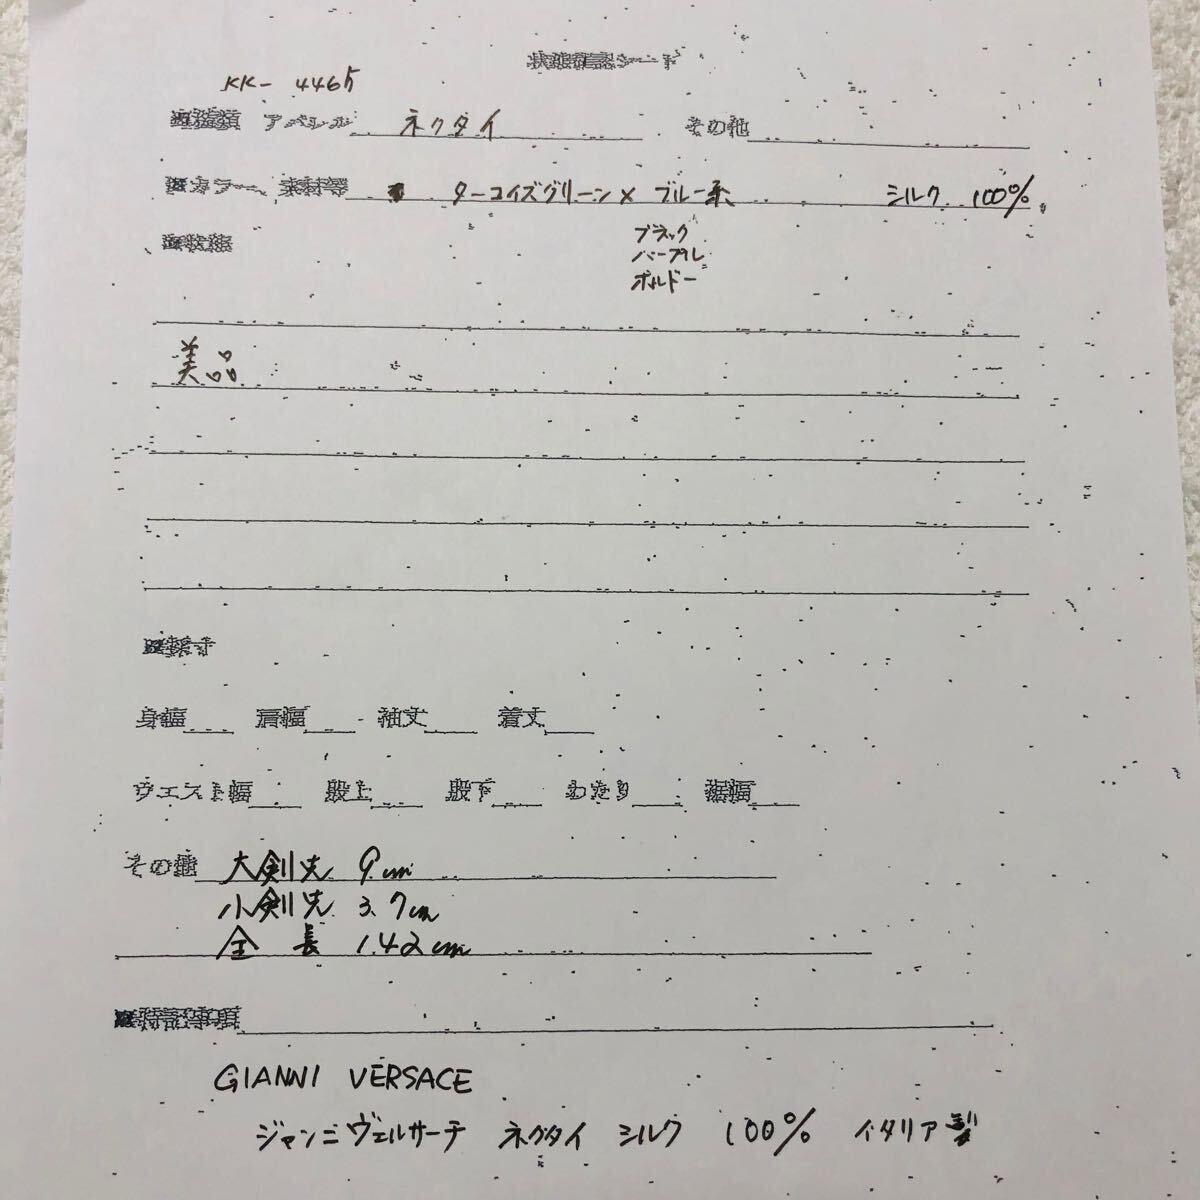 状態確認シート
KK- 4465
■種類 アパレル ネクタイ その他
■カラー、素材等 ターコイズグリーン×ブルー系 シルク 100%
■状態 ブラック
パープル
ボルドー
美品
■採寸
身幅 肩幅 袖丈 着丈
ウエスト幅 股上 股下 わたり 裾幅
その他 大剣先 9cm
小剣先 3.7cm
全長 1.42cm
■特記事項
GIANNI VERSACE
ジャンニヴェルサーチ ネクタイ シルク 100% イタリア製